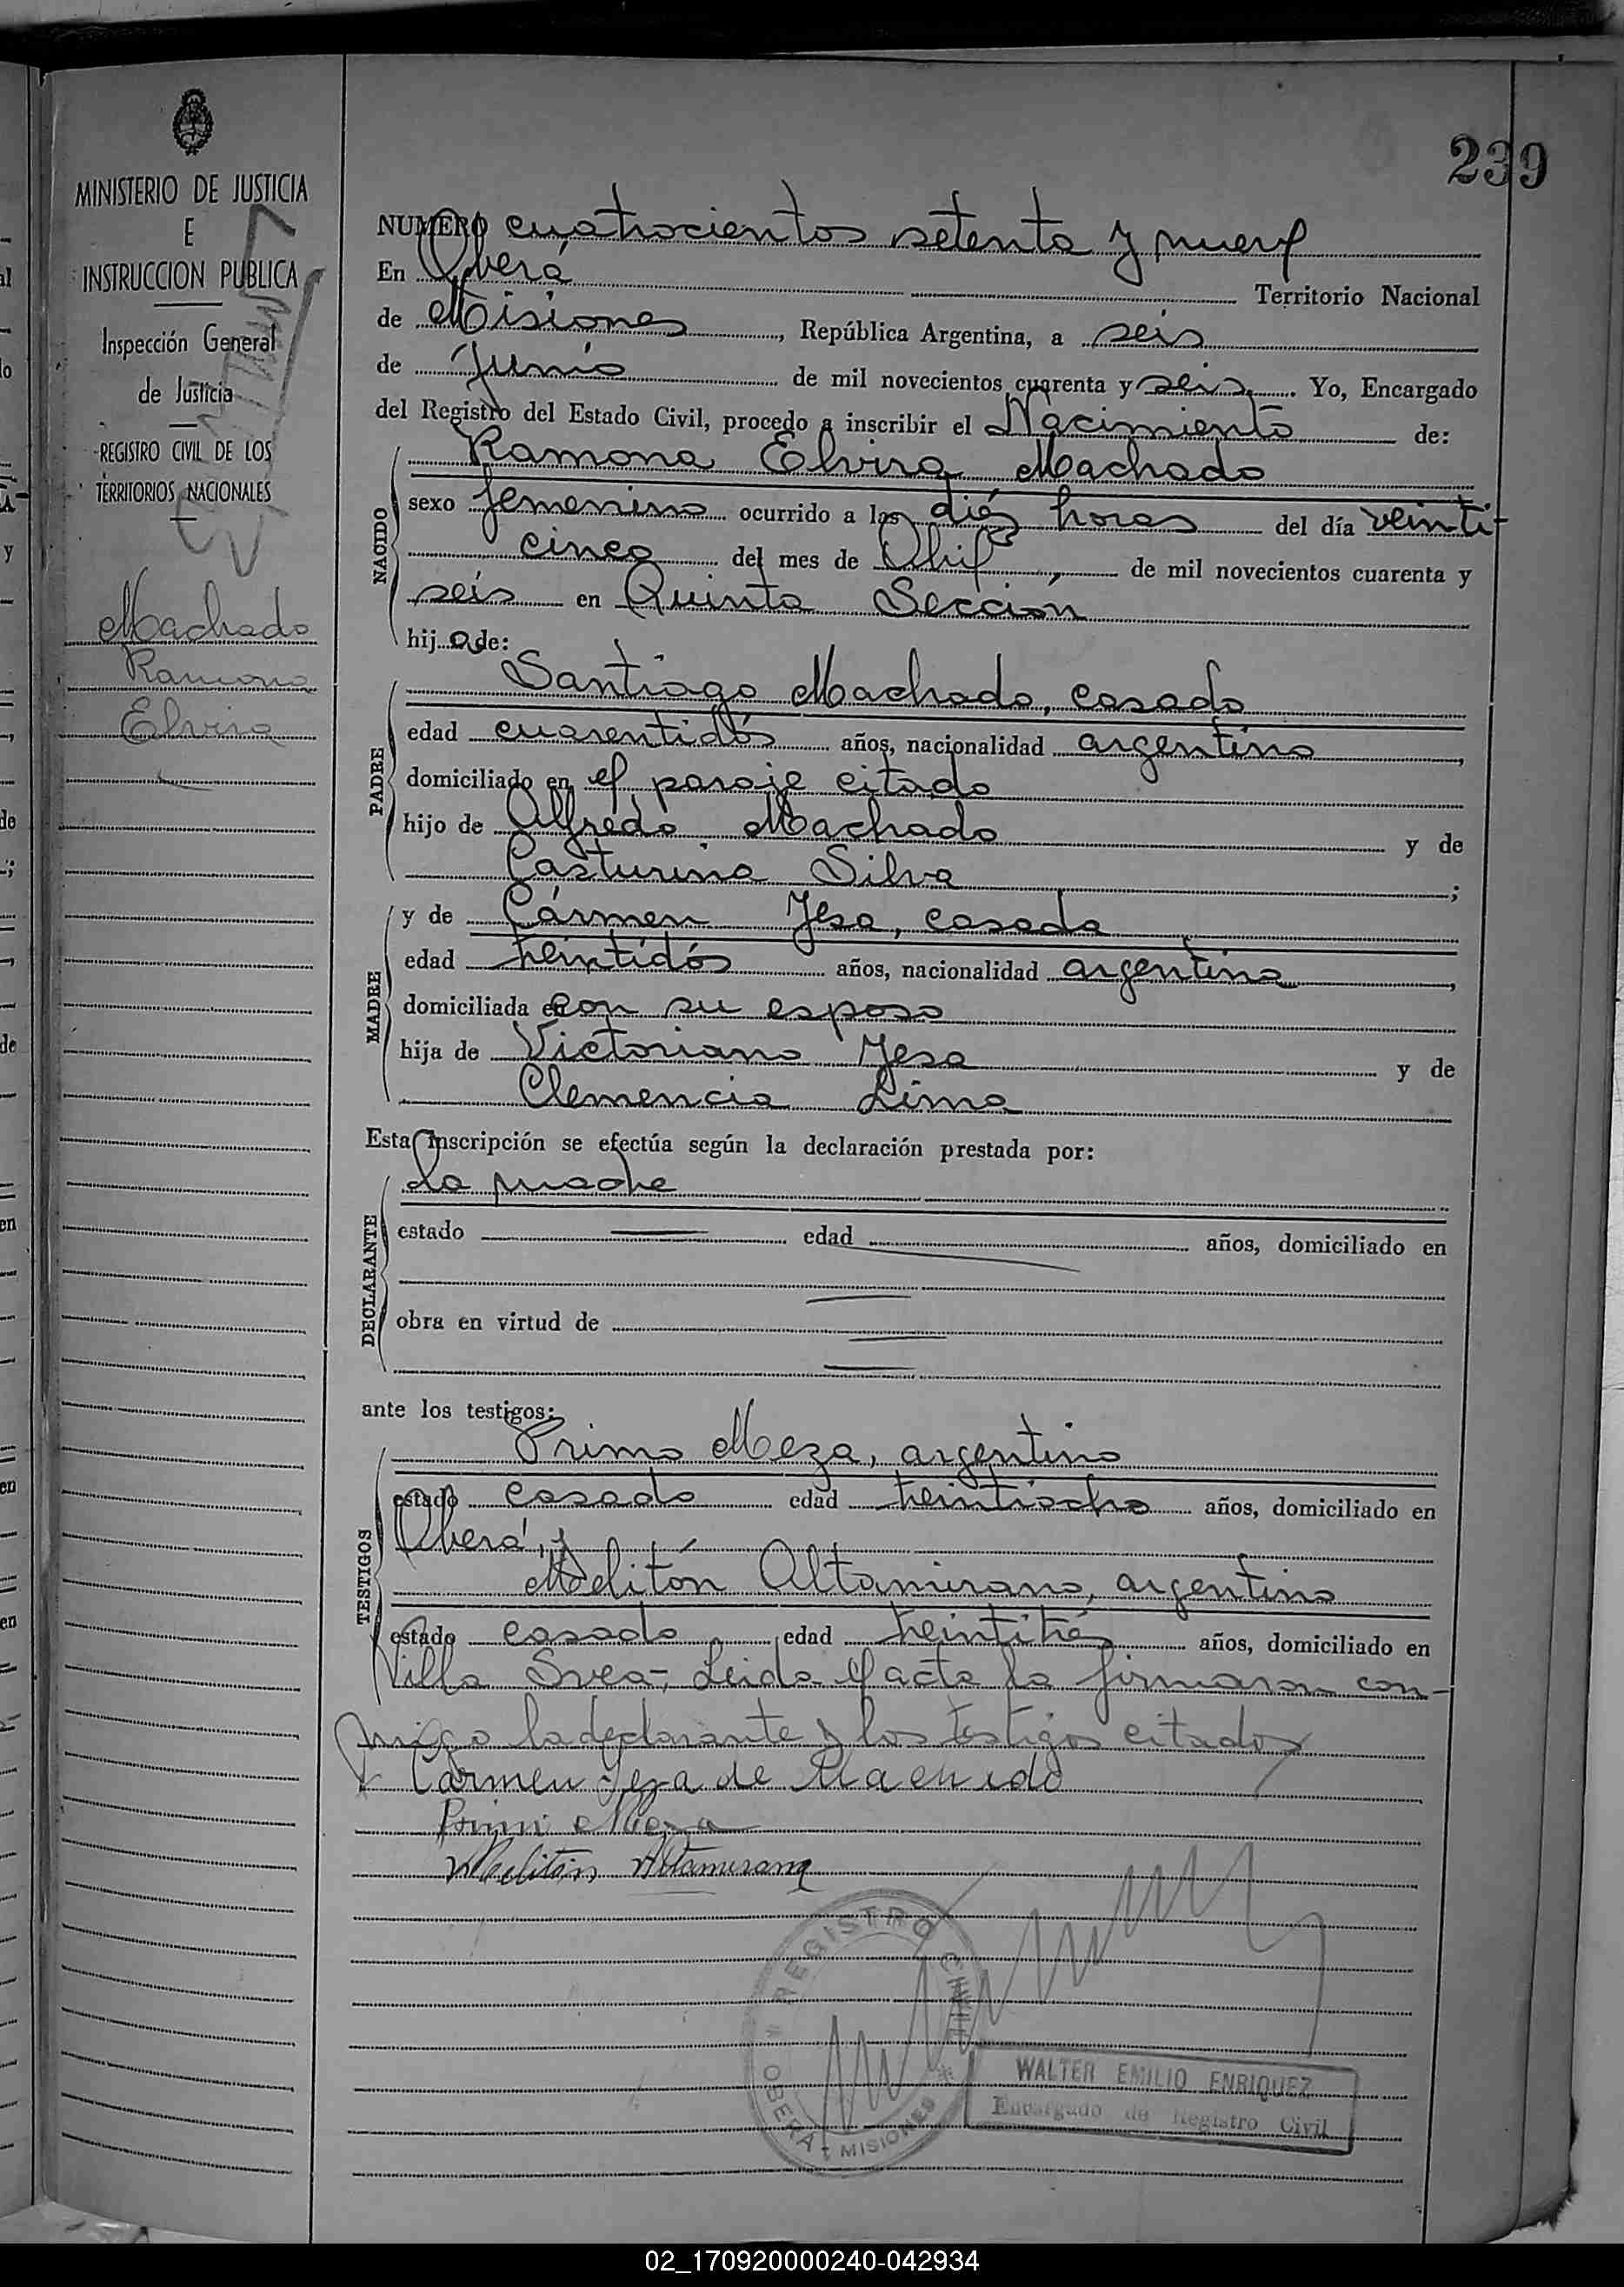 239
MINISTERIO DE JUSTICIA
E
INSTRUCCION PUBLICA
Inspección General
de Justicia
REGISTRO CIVIL DE LOS
TERRITORIOS NACIONALES
Machado
Ramona
Elvira
NUMERO cuatrocientos setenta y nueve
En Oberá Territorio Nacional
de Misiones, República Argentina, a seis
de Junio de mil novecientos cuarenta y seis. Yo, Encargado
del Registro del Estado Civil, procedo a inscribir el Nacimiento de:
NACIDO
Ramona Elvira Machado
sexo femenino ocurrido a las diéz horas del día veinti-
cinco del mes de Abril, de mil novecientos cuarenta y
seis en Quinta Sección
hija de:
PADRE
Santiago Machado, casado
edad cuarentidós años, nacionalidad argentino,
domiciliado en el paraje citado
hijo de Alfredo Machado y de
Casturina Silva;
MADRE
y de Cármen Yesa, casada
edad treintidós años, nacionalidad argentina,
domiciliada en con su esposo
hija de Victoriano Yesa y de
Clemencia Lima
Esta inscripción se efectúa según la declaración prestada por:
DECLARANTE
la madre
estado edad años, domiciliado en
obra en virtud de
ante los testigos:
TESTIGOS
Primo Meza, argentino
estado casado edad treintiocho años, domiciliado en
Oberá, y
Melitón Altamirano, argentino
estado casado edad treintitrés años, domiciliado en
Villa Svea-, Leida el acta la firmaron con-
migo la declarante y los testigos citados
Carmen Yesa de Machado
Primo Meza
Meliton Altamirano
REGISTRO CIVIL
OBERA - MISIONES
WALTER EMILIO ENRIQUEZ
Encargado de Registro Civil
02_170920000240-042934